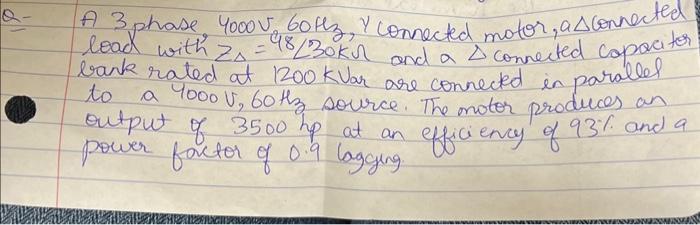 Q- A 3 phase 4000V, 60Hz, Y connected motor, a Δ connected
load with Z_Δ = 48∠30 kΩ and a Δ connected capacitor
bank rated at 1200 KVar are connected in parallel
to a 4000 V, 60Hz source. The motor produces an
output of 3500 hp at an efficiency of 93%. and a
power factor of 0.9 lagging.